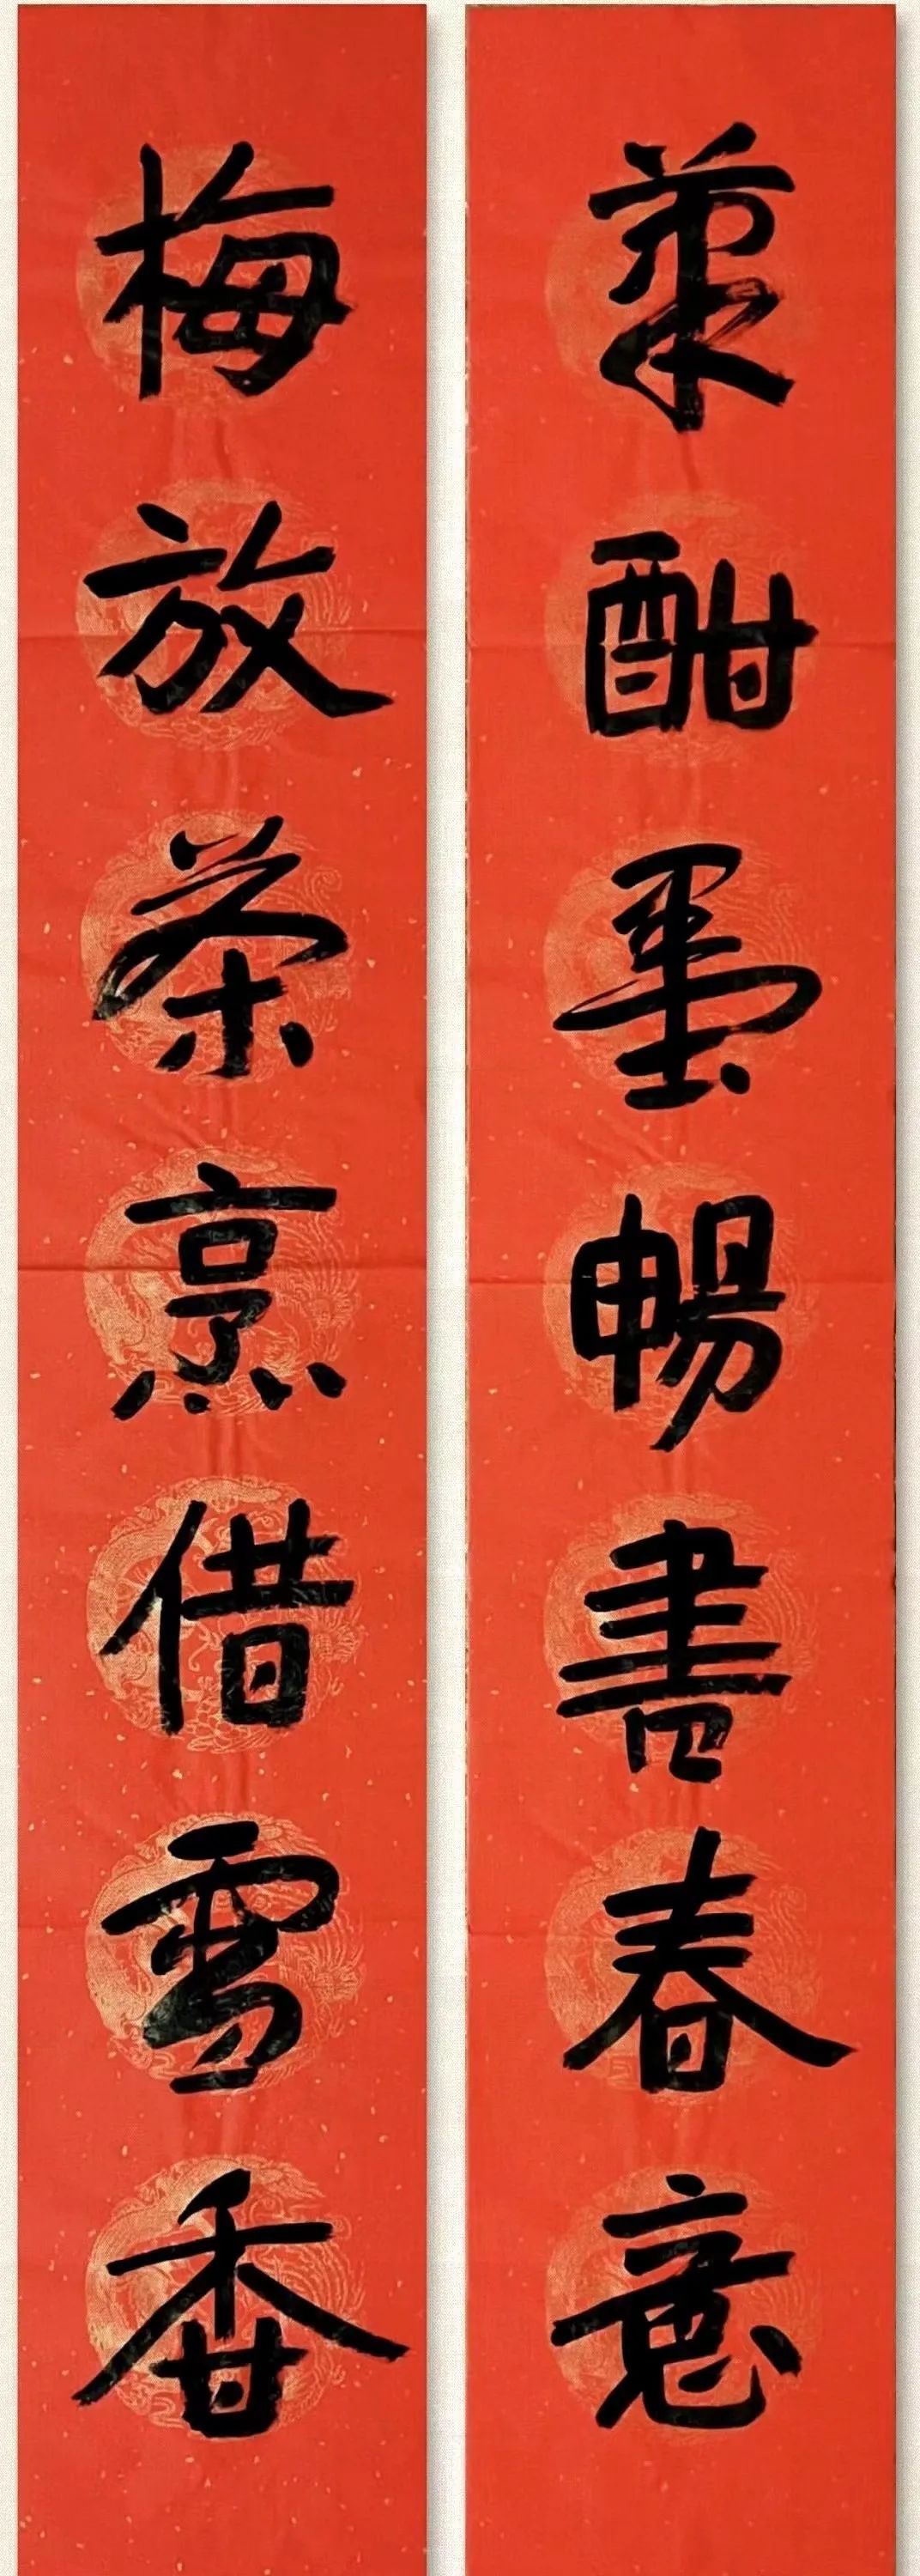 筆酣墨暢書春意
梅放茶烹借雪香